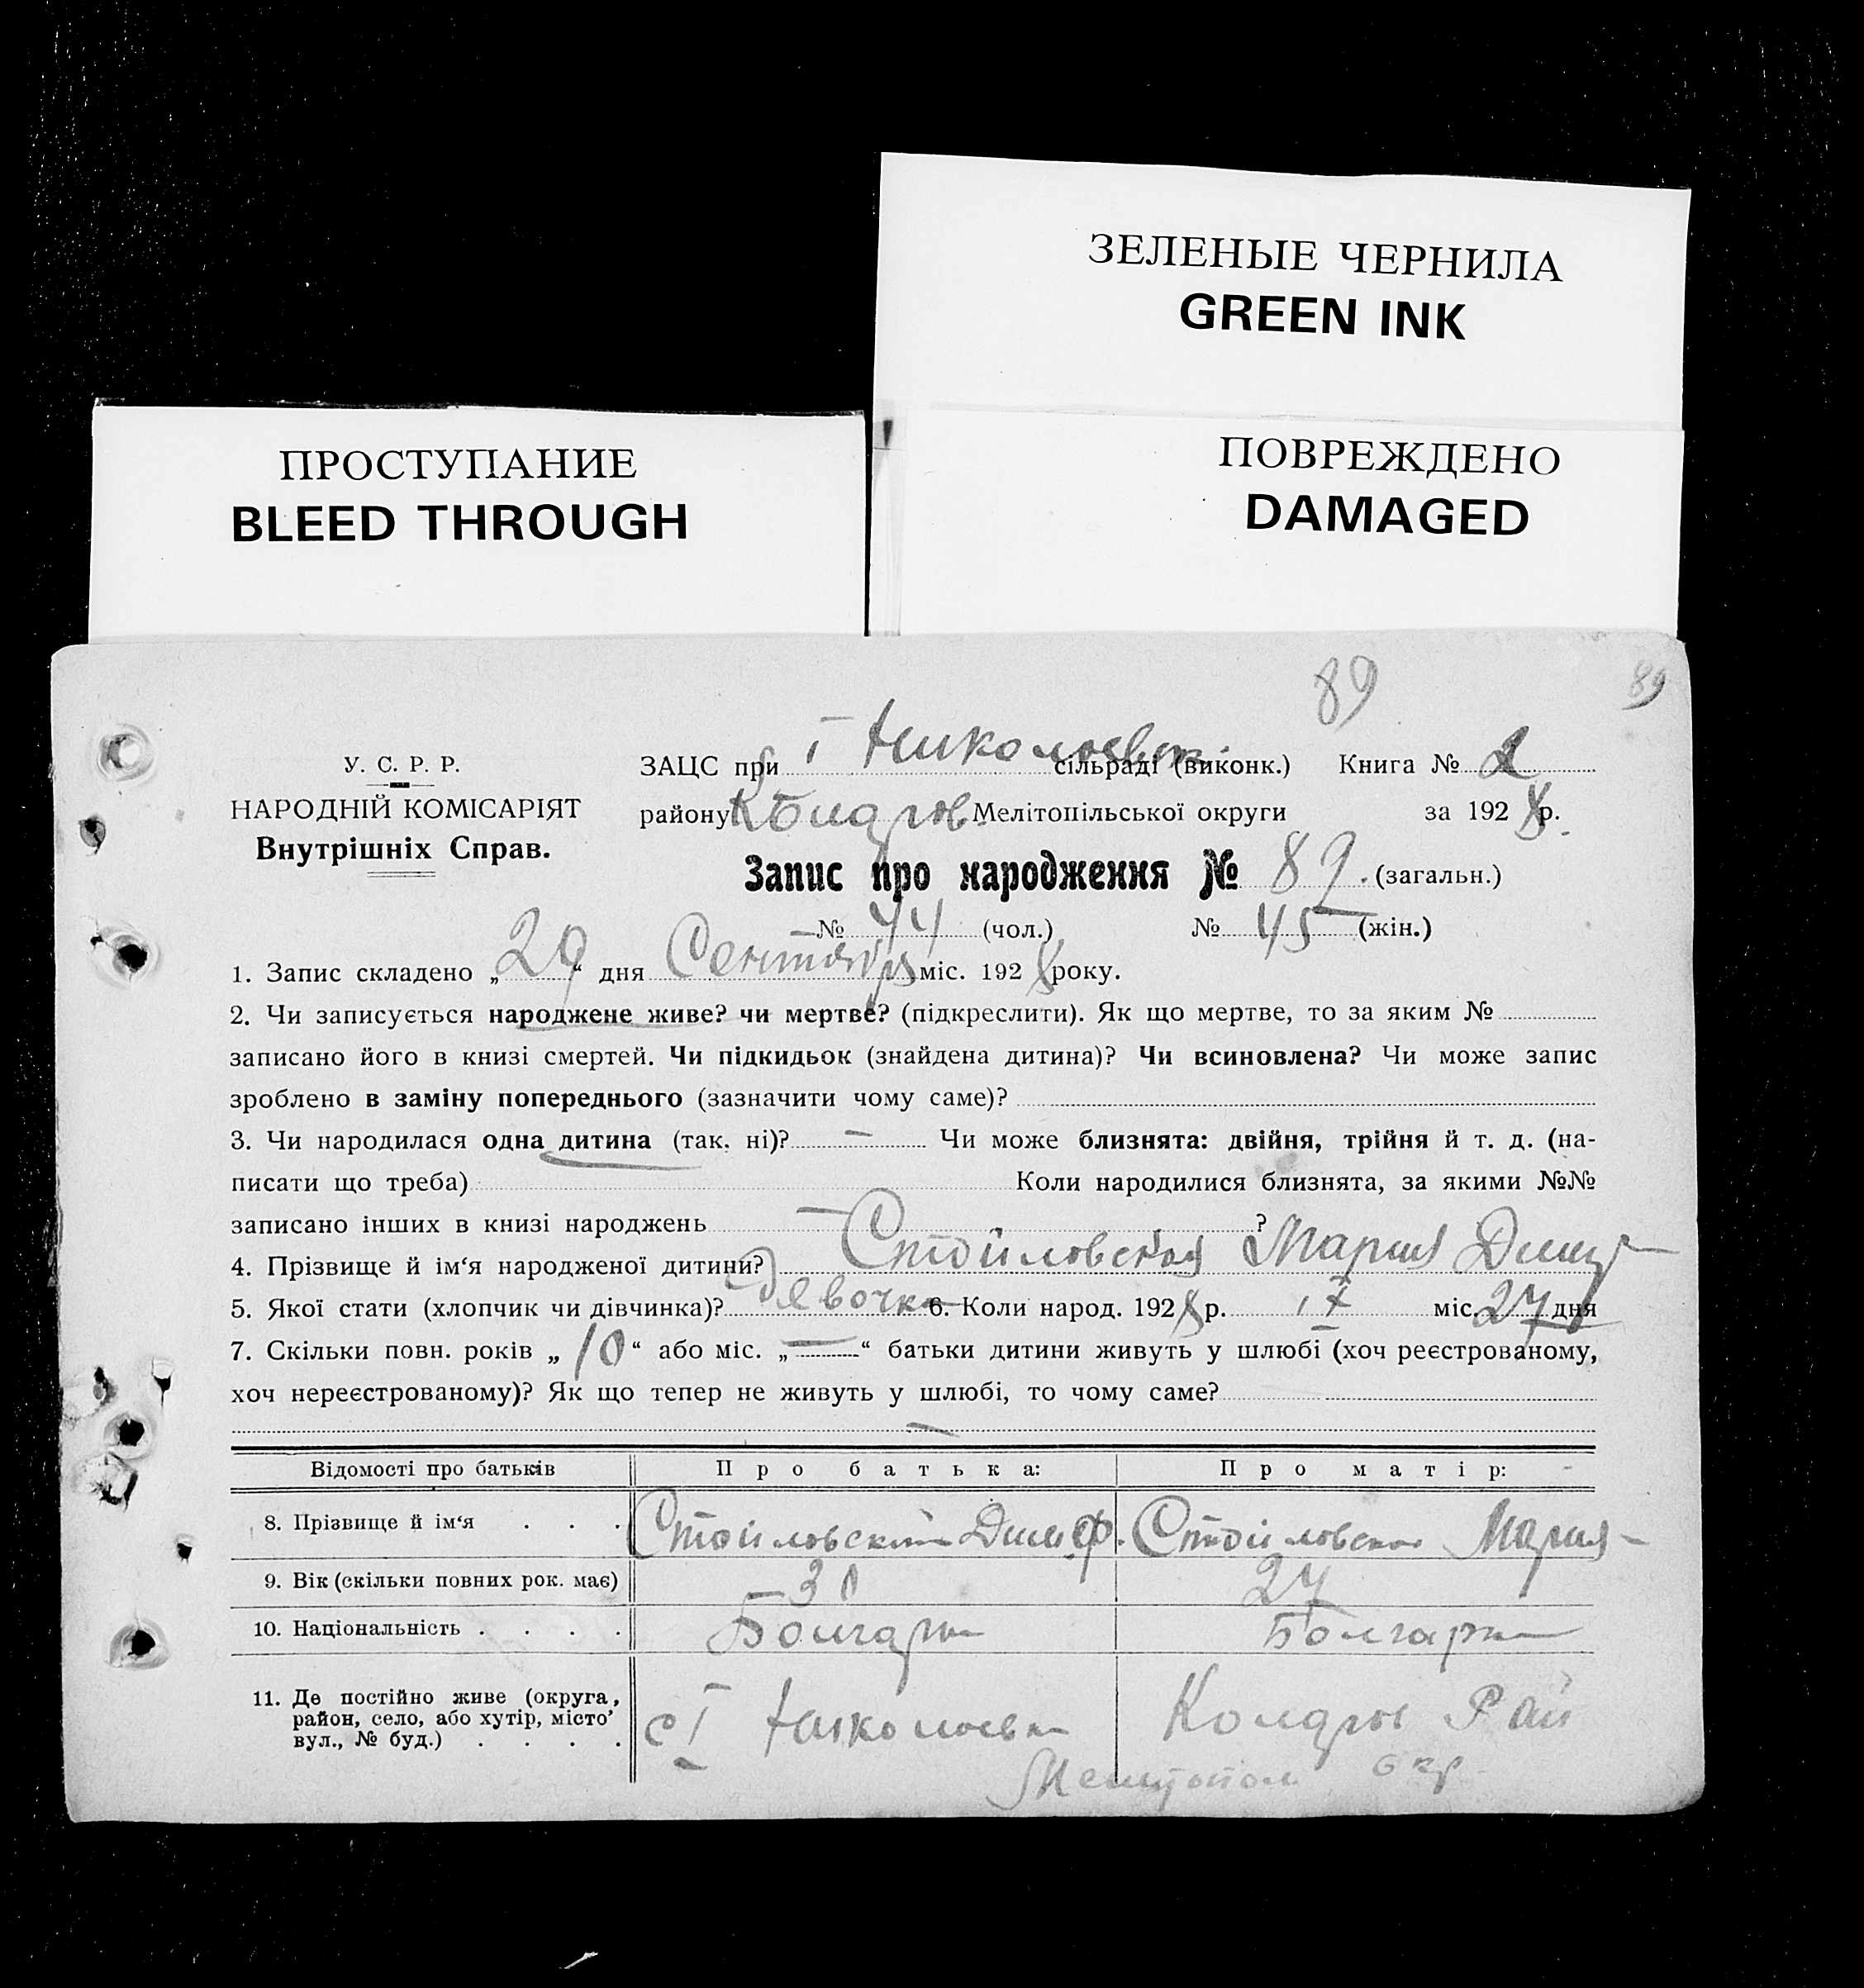 ЗЕЛЕНЫЕ ЧЕРНИЛА
GREEN INK
ПРОСТУПАНИЕ
BLEED THROUGH
ПОВРЕЖДЕНО
DAMAGED
89 89
У. С. Р. Р.
НАРОДНІЙ КОМІСАРІЯТ
Внутрішніх Справ.
ЗАЦС при I Николаевск сільраді (виконк.) Книга №
району Мелітопільської округи за 1928 р.
Запис про народження № 89. (загальн.)
№ 44 (чол.) № 45 (жін.)
1. Запис складено „29“ дня Сентября міс. 1928 року.
2. Чи записується народжене живе? чи мертве? (підкреслити). Як що мертве, то за яким №
записано його в книзі смертей. Чи підкидьок (знайдена дитина)? Чи всиновлена? Чи може запис
зроблено в заміну попереднього (зазначити чому саме)?
3. Чи народилася одна дитина (так. ні)? — Чи може близнята: двійня, трійня й т. д. (на-
писати що треба) Коли народилися близнята, за якими №№
записано інших в книзі народжень — ?
4. Прізвище й ім‘я народженої дитини? Стойловская Мария Дмит
5. Якої стати (хлопчик чи дівчинка)? девочка 6. Коли народ. 1928 р. IX міс. 27 дня
7. Скільки повн. років „10“ або міс. „—“ батьки дитини живуть у шлюбі (хоч реєстрованому,
хоч нереєстрованому)? Як що тепер не живуть у шлюбі, то чому саме?
—
Відомості про батьків Про батька: Про матір:
8. Прізвище й ім‘я . . . Стойловский Стойловская Мария
9. Вік (скільки повних рок. має) 30 27
10. Національність . . . . Болгарин Болгарка
11. Де постійно живе (округа, район, село, або хутір, місто’ вул., № буд.) . . . . с I Николаевка Рай
Мелитопол окр.